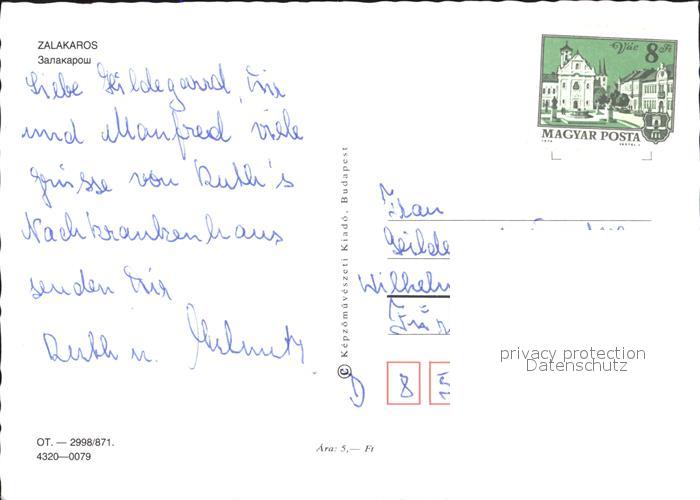 ZALAKAROS
Залакарош
Liebe Hildegard Dir
und Manfred viele
Grüsse von Ruth's
Nachkrankenhaus
senden Dir
Ruth u. Helmuth
© Képzőművészeti Kiadó, Budapest
Vác 8 Ft
MAGYAR POSTA
Frau
Wilhelm
D 8
privacy protection
Datenschutz
OT. — 2998/871.
4320—0079
Ára: 5,— Ft